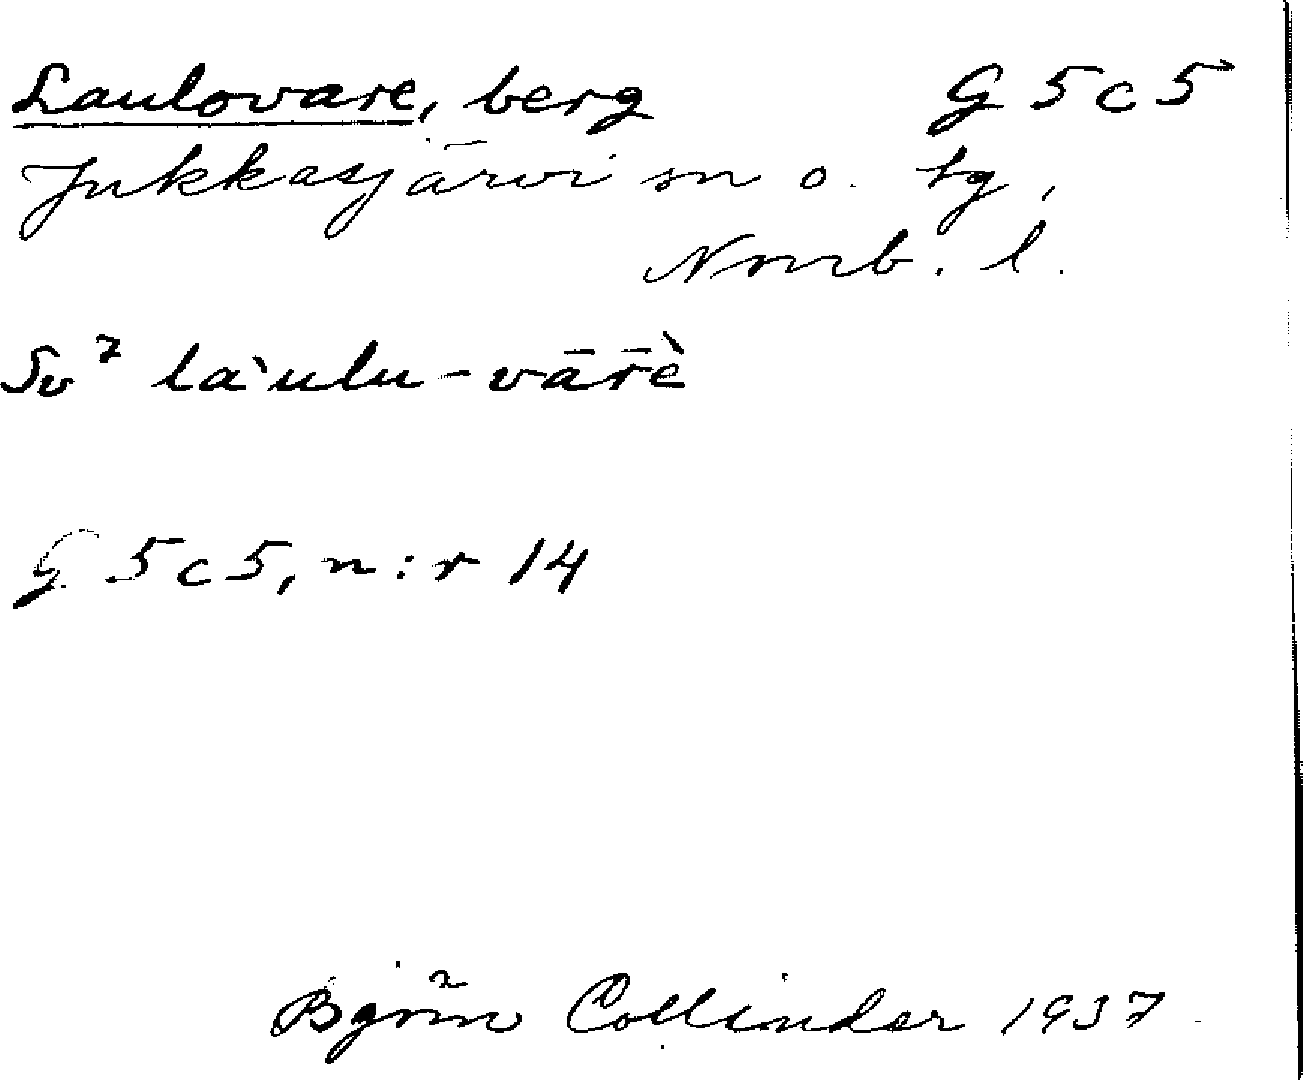 Laulovare, berg G 5 c 5
Jukkasjärvi sn o. tg,
Norrb. l.
Sv² la`ulu-vār̄è
G 5 c 5, n:r 14
Björn Collinder 1937